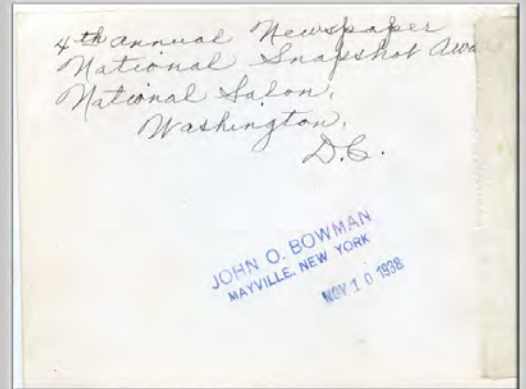 4th annual Newspaper
National Snapshot Awa
National Salon,
Washington,
D.C.
JOHN O. BOWMAN
MAYVILLE, NEW YORK
NOV 10 1938